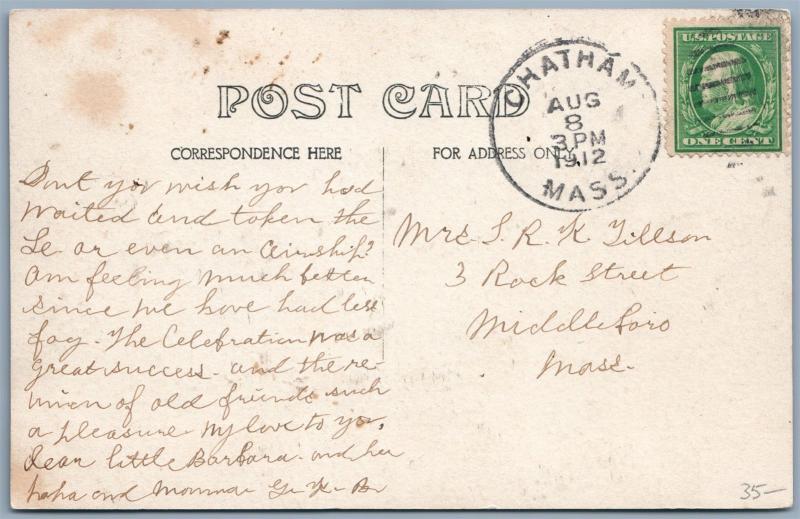 POST CARD
CORRESPONDENCE HERE
FOR ADDRESS ONLY
CHATHAM
AUG
8
3 PM
1912
MASS.
U.S. POSTAGE
ONE CENT
Dont you wish you had
waited and taken the
or even an airship?
Am feeling much better
since we have had less
fog. The Celebration was a
great success and the re-
union of old friends such
a pleasure My love to you,
dear little Barbara and her
papa and Momma
Mrs. R. K. Tillson
3 Rock Street
Middleboro
Mass.
35-